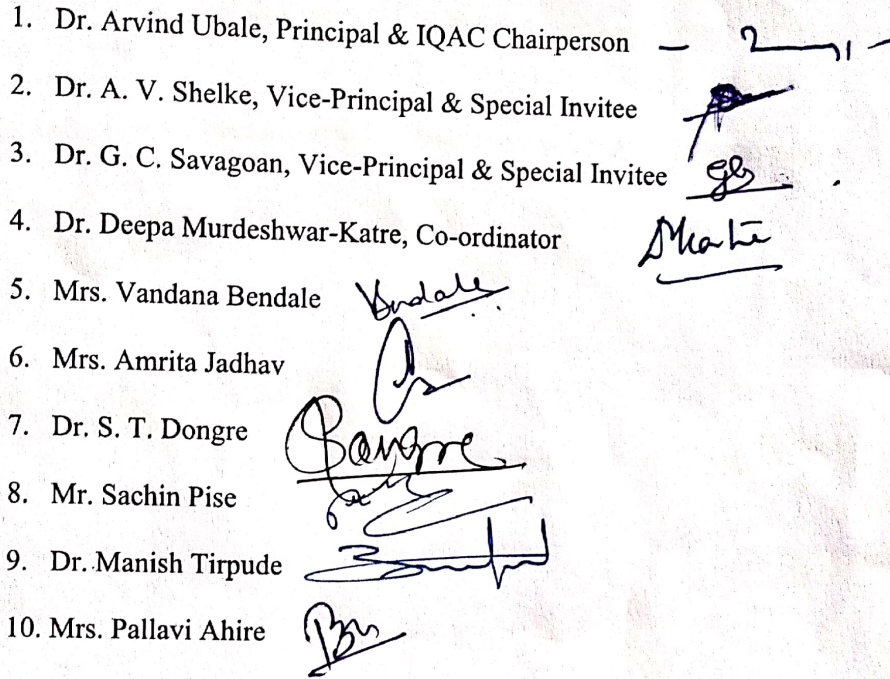 1. Dr. Arvind Ubale, Principal & IQAC Chairperson
2. Dr. A. V. Shelke, Vice-Principal & Special Invitee
3. Dr. G. C. Savagoan, Vice-Principal & Special Invitee
4. Dr. Deepa Murdeshwar-Katre, Co-ordinator
5. Mrs. Vandana Bendale Bendale
6. Mrs. Amrita Jadhav
7. Dr. S. T. Dongre
8. Mr. Sachin Pise
9. Dr. Manish Tirpude
10. Mrs. Pallavi Ahire